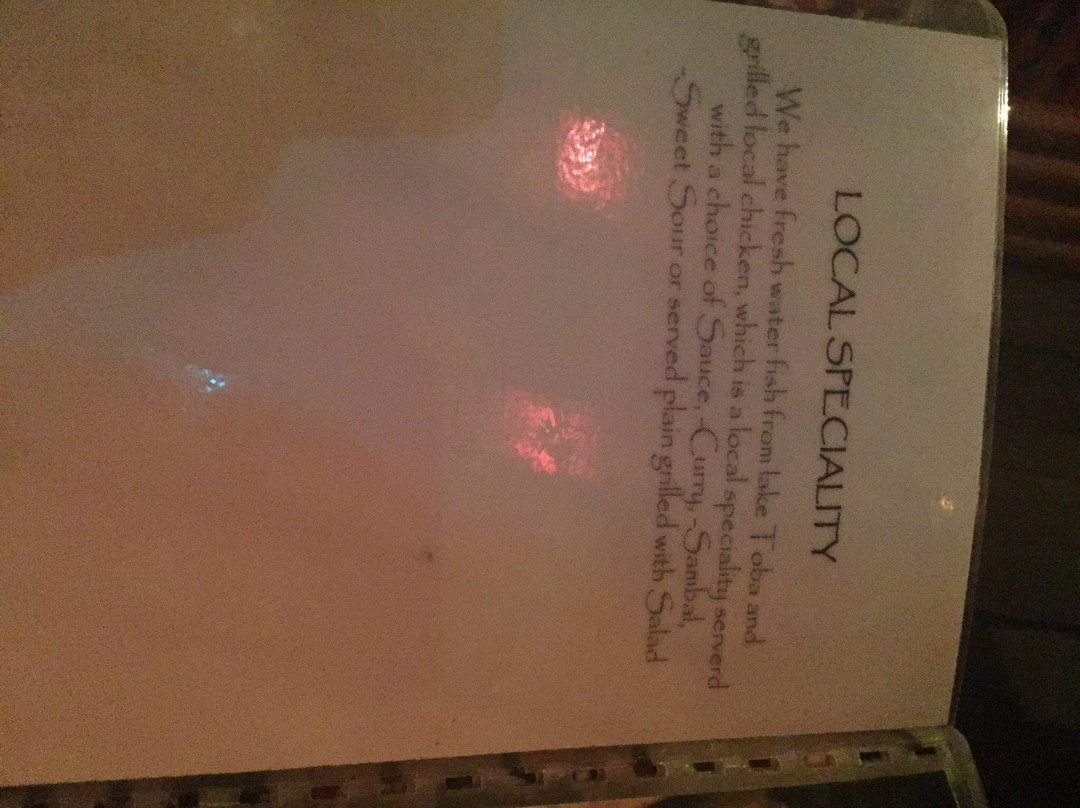 LOCAL SPECIALITY
We have fresh water fish from lake Toba and
grilled local chicken, which is a local speciality serverd
with a choice of Sauce, -Curry, -Sambal,
-Sweet Sour or served plain grilled with Salad